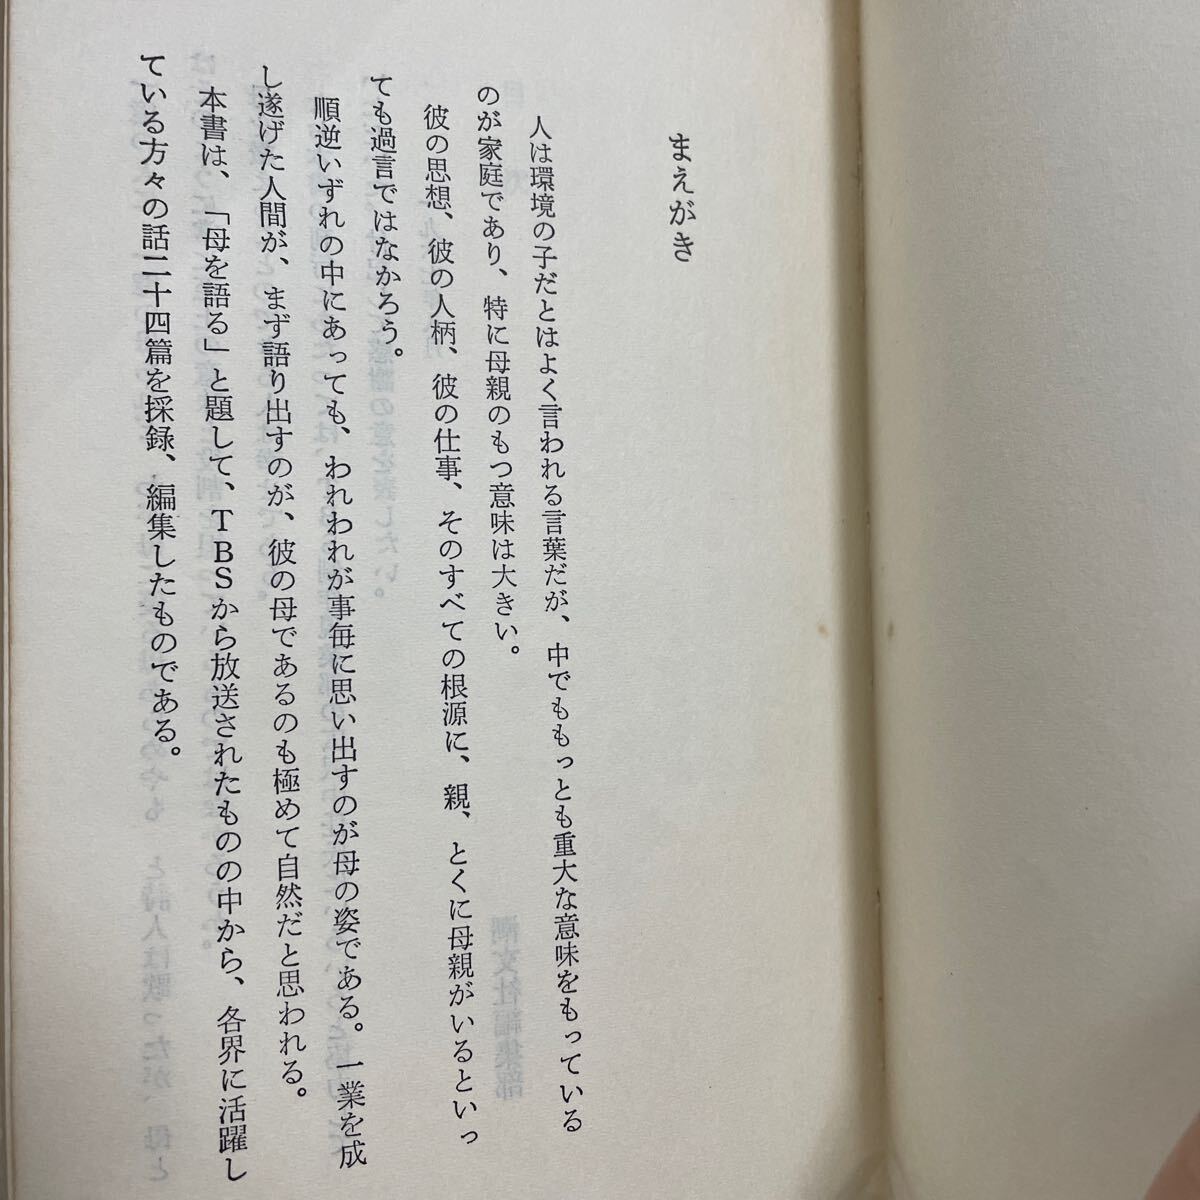 まえがき
人は環境の子だとはよく言われる言葉だが、中でももっとも重大な意味をもっている
のが家庭であり、特に母親のもつ意味は大きい。
彼の思想、彼の人柄、彼の仕事、そのすべての根源に、親、とくに母親がいるといっ
ても過言ではなかろう。
順逆いずれの中にあっても、われわれが事毎に思い出すのが母の姿である。一業を成
し遂げた人間が、まず語り出すのが、彼の母であるのも極めて自然だと思われる。
本書は、「母を語る」と題して、TBSから放送されたものの中から、各界に活躍し
ている方々の話二十四篇を採録、編集したものである。
潮文社編集部